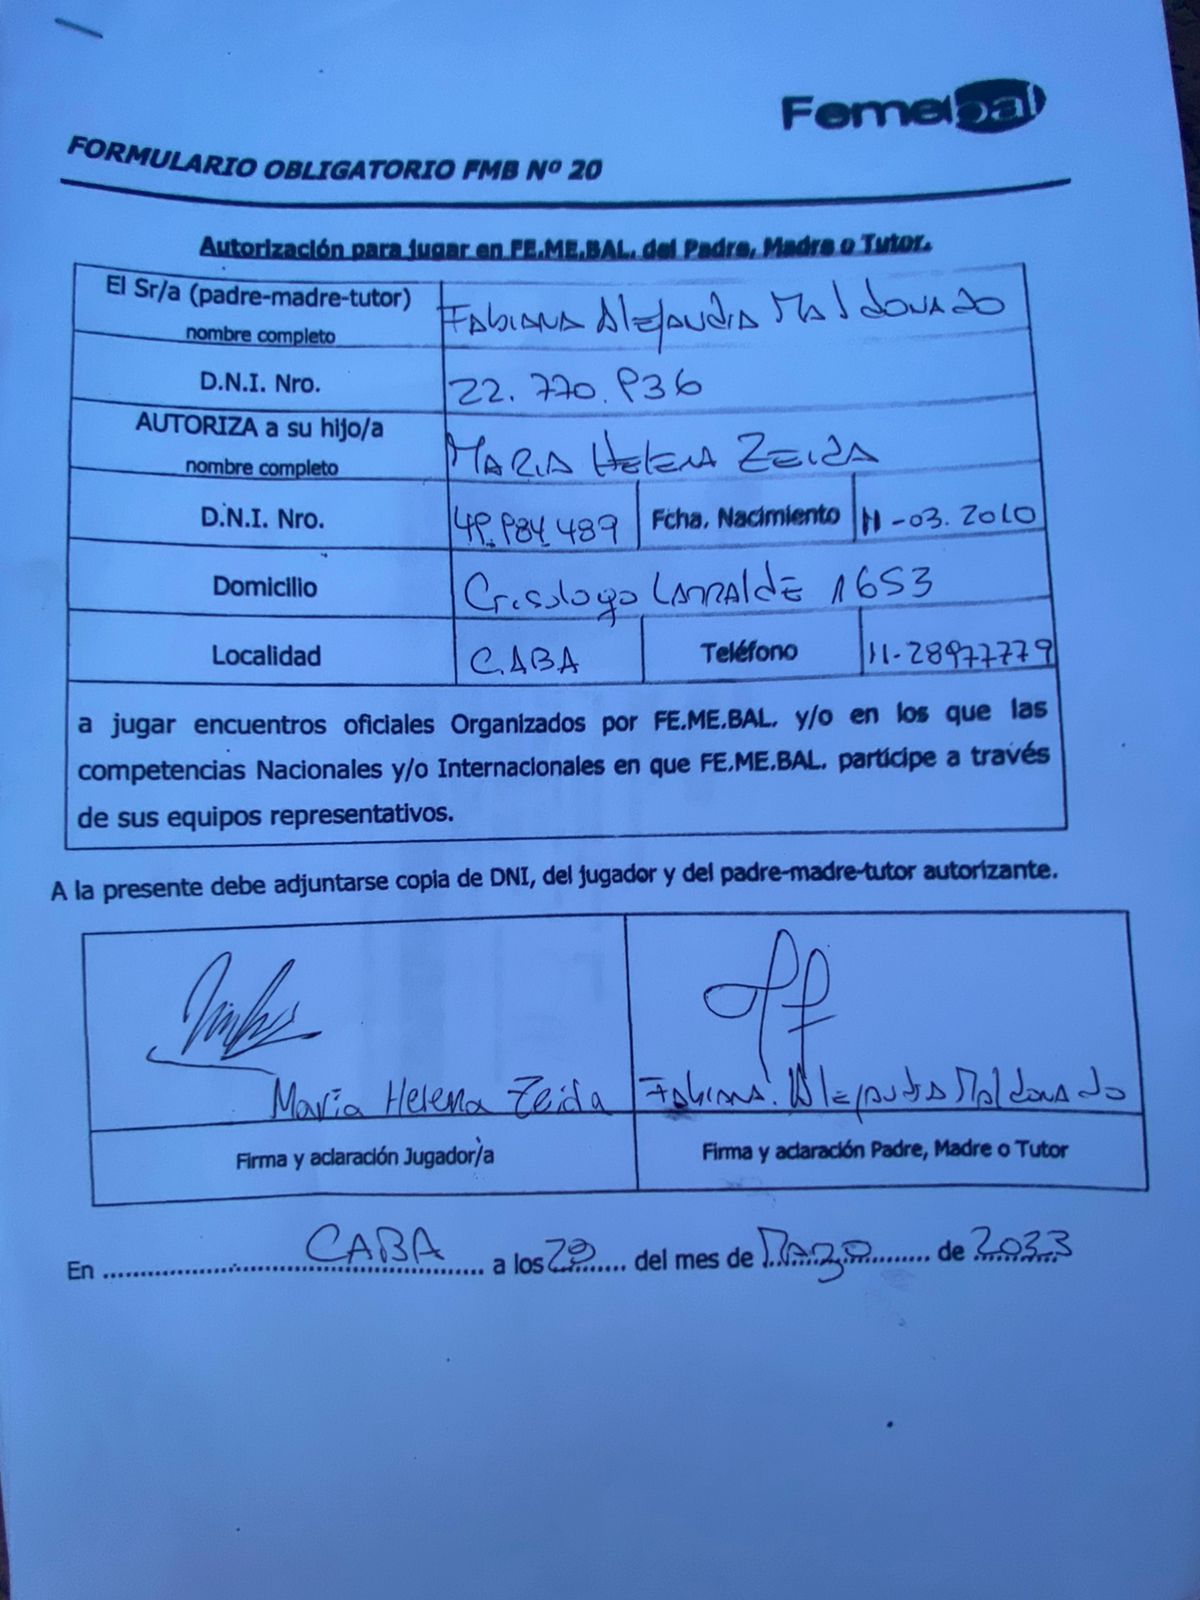 Femebal
FORMULARIO OBLIGATORIO FMB Nº 20
Autorización para jugar en FE.ME.BAL. del Padre, Madre o Tutor.
El Sr/a (padre-madre-tutor)
nombre completo
Fabiana Alejandra Maldonado
D.N.I. Nro.
22.770.936
AUTORIZA a su hijo/a
nombre completo
Maria Helena Zeida
D.N.I. Nro.
49.984.489
Fcha. Nacimiento
11-03.2010
Domicilio
Crisologo Larralde 1653
Localidad
CABA
Teléfono
11-28977779
a jugar encuentros oficiales Organizados por FE.ME.BAL. y/o en los que las
competencias Nacionales y/o Internacionales en que FE.ME.BAL. participe a través
de sus equipos representativos.
A la presente debe adjuntarse copia de DNI, del jugador y del padre-madre-tutor autorizante.
María Helena Zeida
Fabiana Alejandra Maldonado
Firma y aclaración Jugador/a
Firma y aclaración Padre, Madre o Tutor
En CABA a los 29 del mes de Marzo de 2023